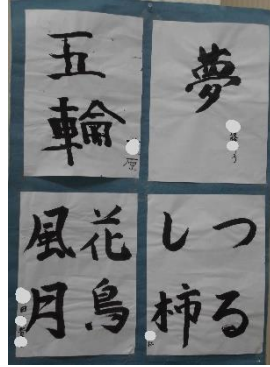 夢
五輪
つる
し柿
花鳥
風月